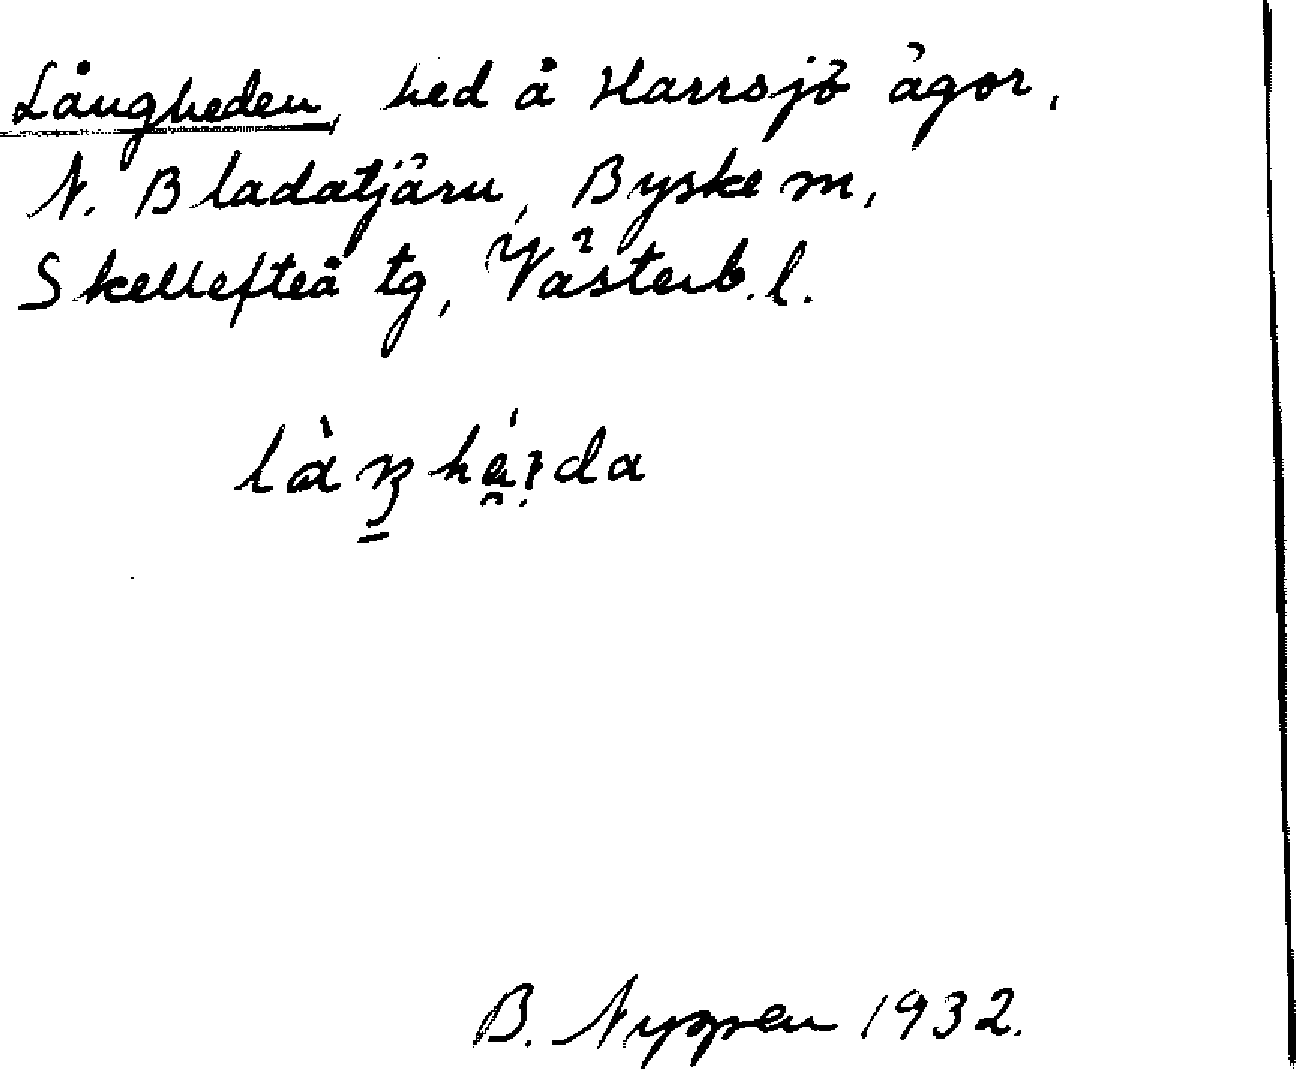 Långheden, hed å Harrsjö ägor,
N. Bladatjärn, Byske sn,
Skellefteå tg, Västerb. l.
B. Nygren 1932.